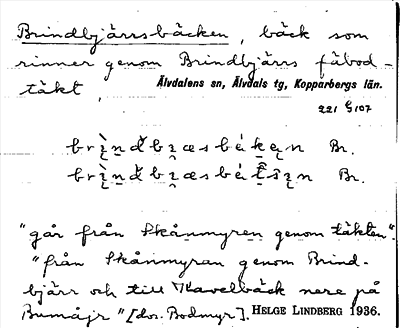 Brindbjärrsbäcken, bäck som
rinner genom Brindbjärrs fäbod-
täkt,
Älvdalens sn, Älvdals tg, Kopparbergs län.
221 G 107
Br.
Br.
"går från Skånmyren genom täkten".
"från Skånmyran genom Brind-
bjärr och till Kavelbäck nere på
Bumåjr" [dvs. Bodmyr]. HELGE LINDBERG 1936.